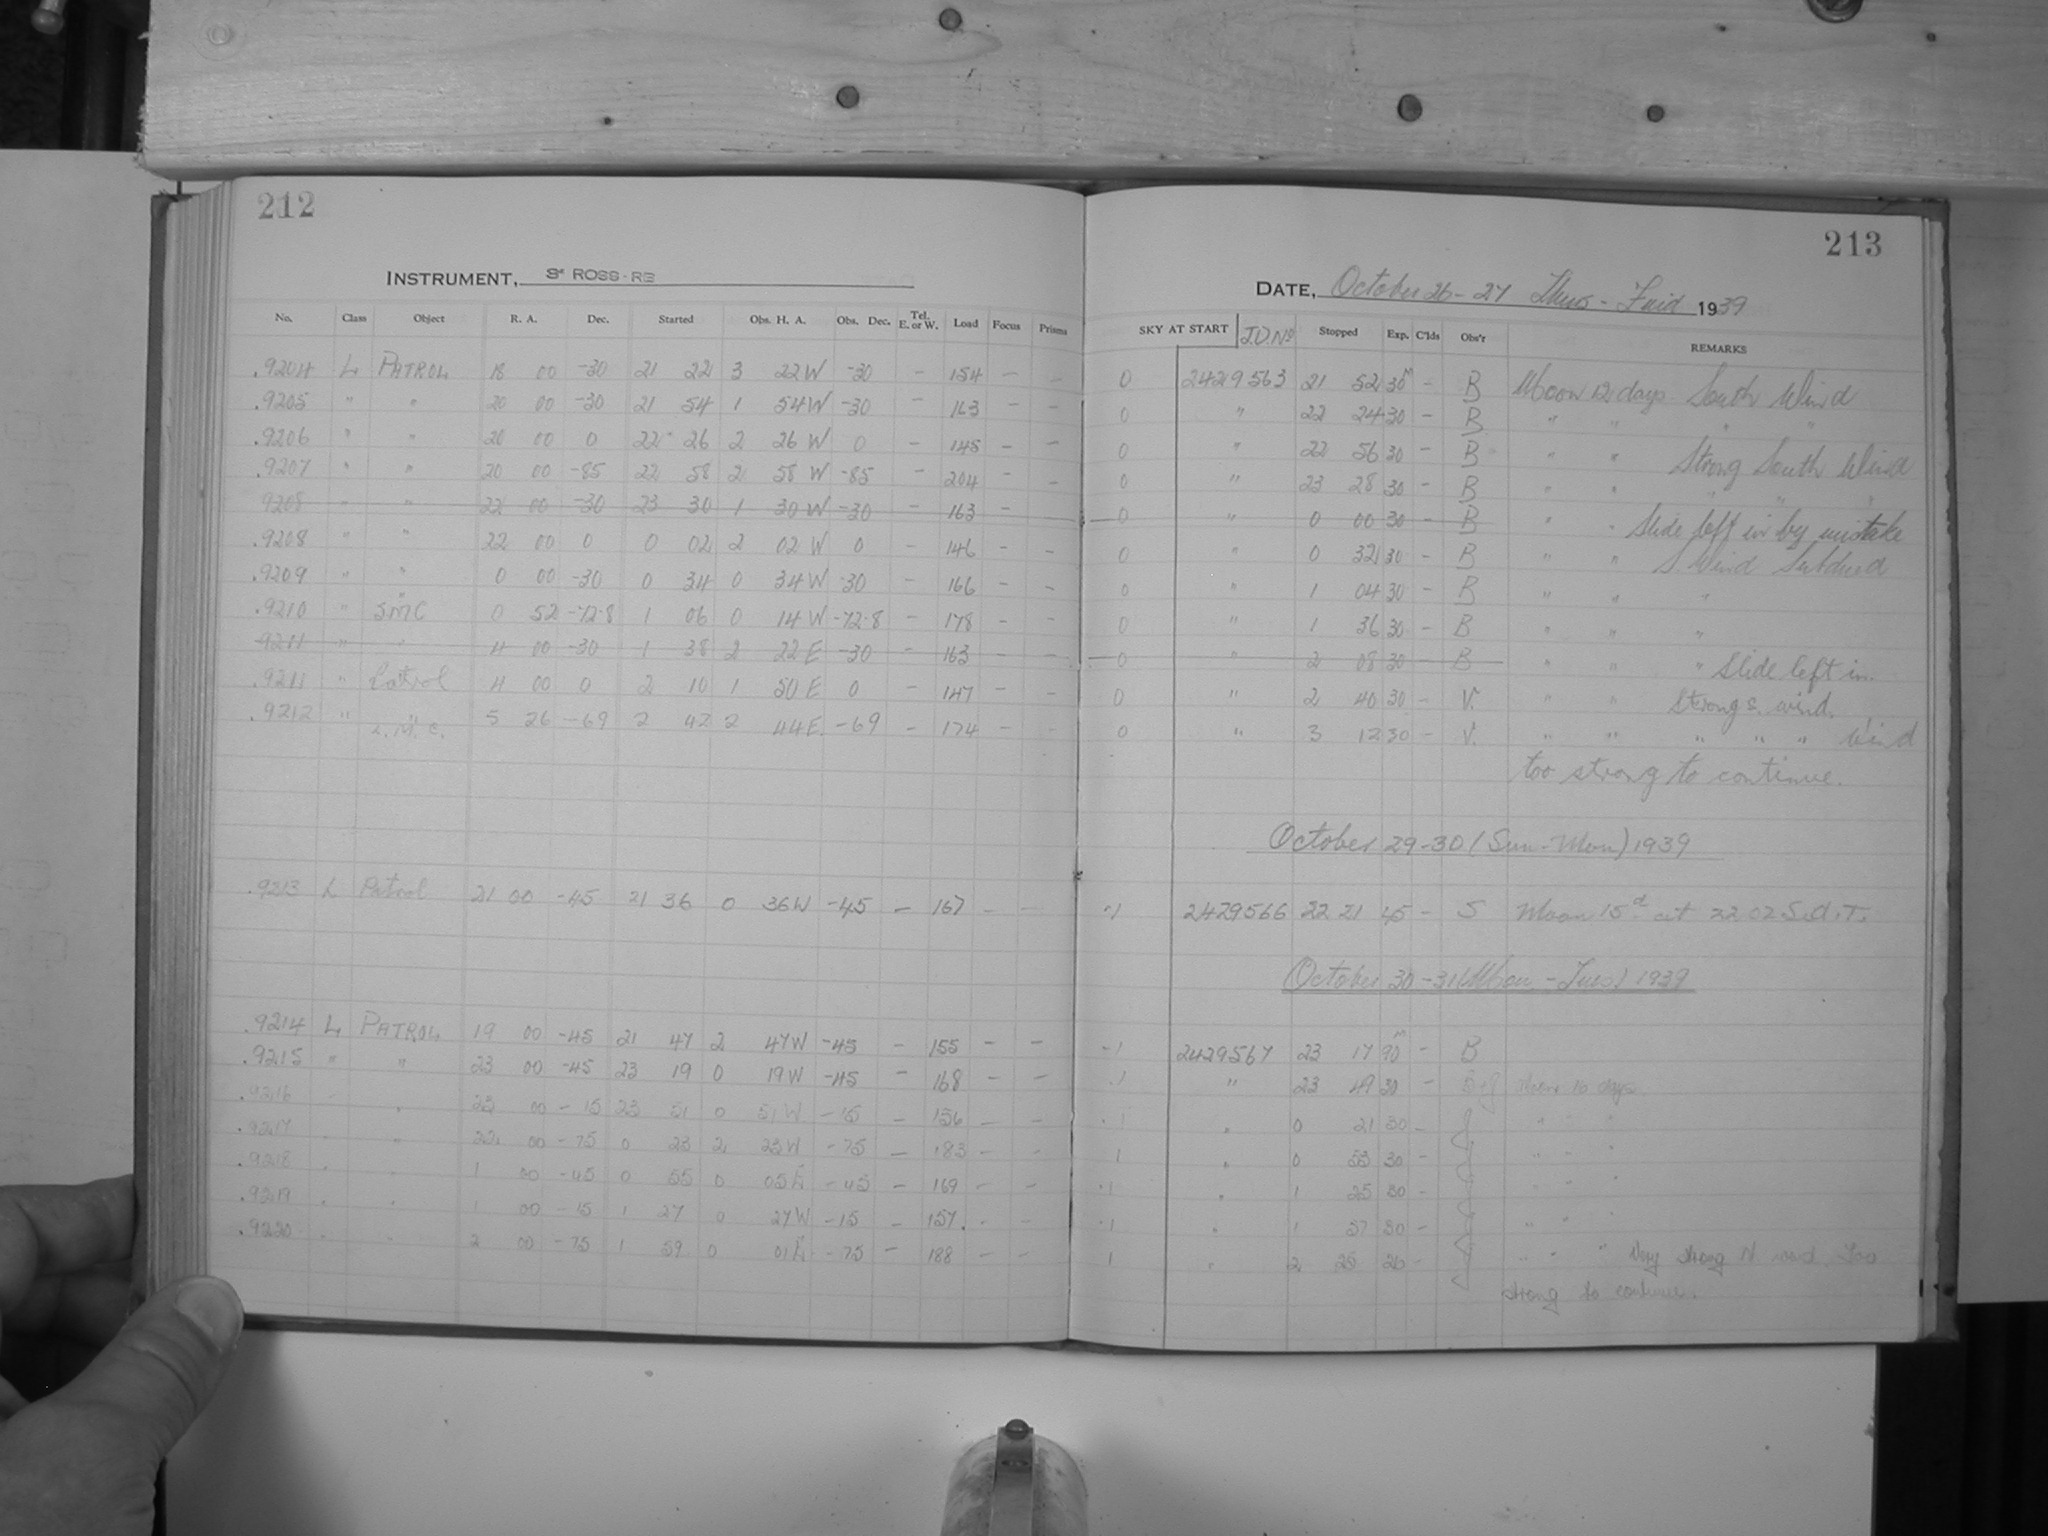 212
INSTRUMENT, 3" ROSS-RB
No. Class Object R. A. Dec. Started Obs. H. A. Obs. Dec. Tel. E. or W. Load Focus Prisms
.9204 L PATROL 18 00 -30 21 22 3 22W -30 - 154 - -
.9205 " " 20 00 -30 21 54 1 54W -30 - 163 - -
.9206 " " 20 00 0 22 26 2 26 W 0 - 145 - -
.9207 " " 20 00 -85 22 58 2 58 W -85 - 204 - -
9208 " " 22 00 -30 23 30 1 30 W -30 - 163 -
.9208 " " 22 00 0 0 02 2 02 W 0 - 146 - -
.9209 " " 0 00 -30 0 34 0 34W -30 - 166 - -
.9210 " SMC 0 52 -72.8 1 06 0 14 W -72.8 - 178 - -
9211 " " 4 00 -30 1 38 2 22 E -30 - 163 - -
.9211 " Patrol 4 00 0 2 10 1 50 E 0 - 147 - -
.9212 " L.M.C. 5 26 -69 2 42 2 44E -69 - 174 - -
.9213 L Patrol 21 00 -45 21 36 0 36W -45 - 167 - -
.9214 L PATROL 19 00 -45 21 47 2 47W -45 - 155 - -
.9215 " " 23 00 -45 23 19 0 19W -45 - 168 - -
.9216 " 23 00 -15 23 51 0 51W -15 - 156 - -
.9217 " " 22 00 -75 0 23 2 23W -75 - 183 - -
.9218 " " 1 00 -45 0 55 0 05E -45 - 169 - -
.9219 " " 1 00 -15 1 27 0 27W -15 - 157. - -
.9220 " " 2 00 -75 1 59 0 01E -75 - 188 - -
213
DATE, October 26-27 Thurs - Frid 1939
SKY AT START J.D. No Stopped Exp. C'lds Obs'r REMARKS
0 2429563 21 52 30m - B Moon 12 days South Wind
0 " 22 24 30 - B " " " "
0 " 22 56 30 - B " " Strong South Wind
0 " 23 28 30 - B " " " " "
0 " 0 00 30 - B " " Slide left in by mistake
0 " 0 32 30 - B " " S Wind Subdued
0 " 1 04 30 - B " " "
0 " 1 36 30 - B " " "
0 " 2 08 30 - B " " " Slide left in
0 " 2 40 30 - V. " " Strong S. wind.
0 " 3 12 30 - V. " " " " " Wind
too strong to continue.
October 29-30 (Sun-Mon) 1939
-1 2429566 22 21 45 - S Moon 15d at 22 02 S.A.T.
October 30-31 (Mon-Tues) 1939
-1 2429567 23 17 90m - B
.1 " 23 49 30 - Moon 16 days.
.1 " 0 21 30 - " " "
1 " 0 53 30 - " " "
.1 " 1 25 30 - " " "
.1 " 1 57 30 - " " "
1 " 2 25 26 - " " " Very strong N wind Too
strong to continue.